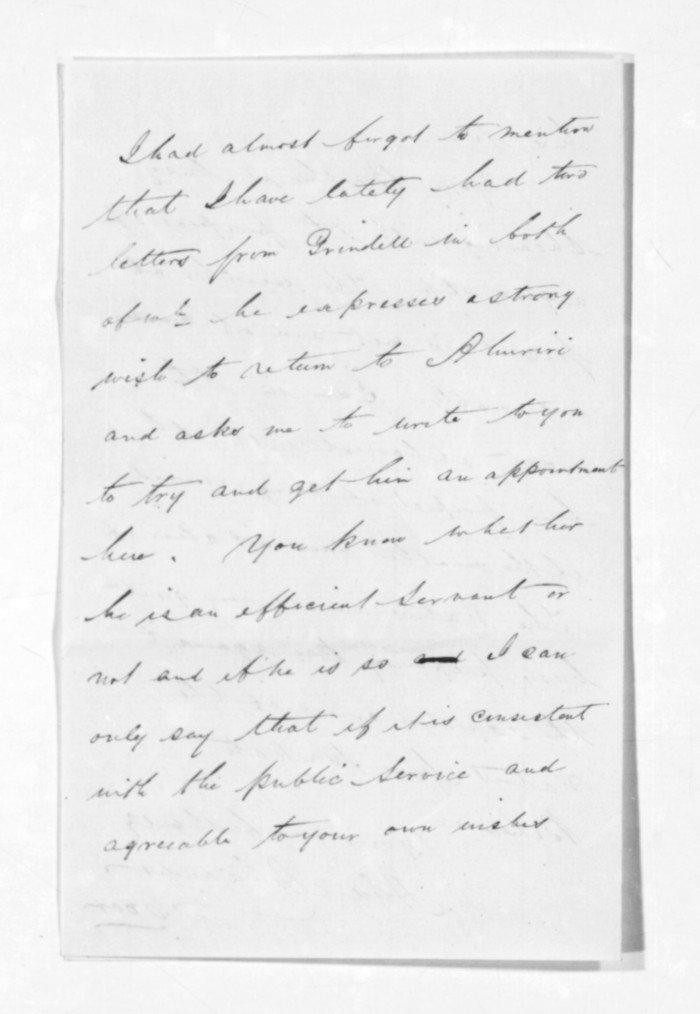 I had almost forgot to mention
that I have lately had two
letters from Grindell in both
of wh he expresses a strong
wish to return to Ahuriri
and asks me to write to you
to try and get him an appointment
here. You know whether
he is an efficient servant or
not and if he is so and I can
only say that if it is consistent
with the public service and
agreeable to your own wishes